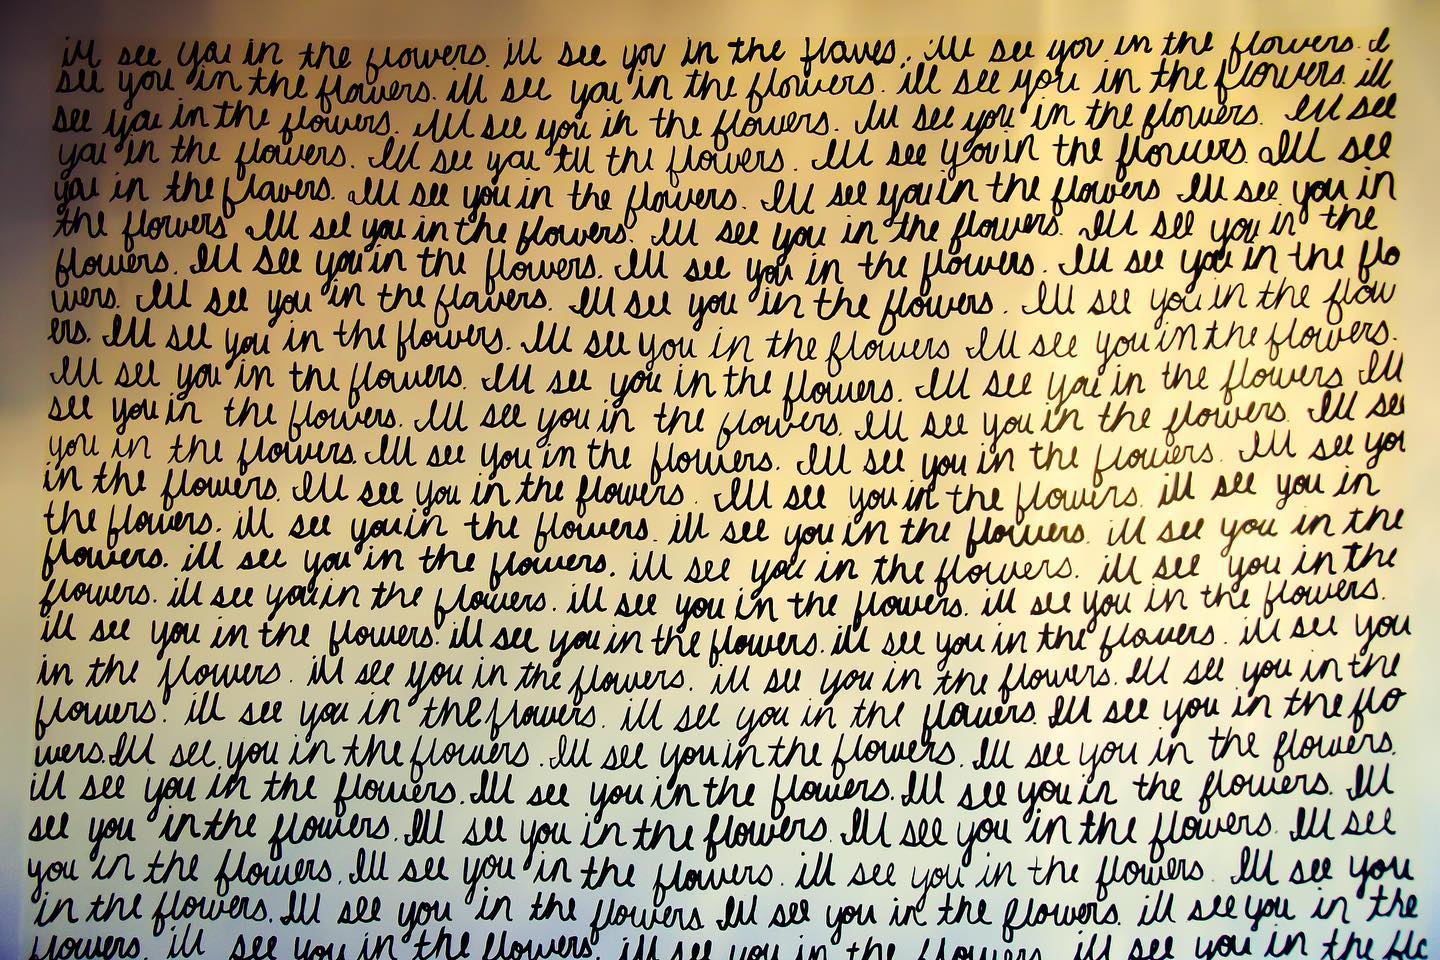 ill see you in the flowers. ill see you in the flowers. ill see you in the flowers. I
see you in the flowers. ill see you in the flowers. ill see you in the flowers. ill
see you in the flowers. Ill see you in the flowers. Ill see you in the flowers. Ill see
you in the flowers. Ill see you in the flowers. Ill see you in the flowers. Ill see
you in the flowers. Ill see you in the flowers. Ill see you in the flowers Ill see you in
the flowers Ill see you in the flowers. Ill see you in the flowers. Ill see you in the
flowers. Ill see you in the flowers. Ill see you in the flowers. Ill see you in the flo
wers. Ill see you in the flowers. Ill see you in the flowers. Ill see you in the flow
ers. Ill see you in the flowers. Ill see you in the flowers Ill see you in the flowers.
Ill see you in the flowers. Ill see you in the flowers. Ill see you in the flowers Ill
see you in the flowers. Ill see you in the flowers. Ill see you in the flowers. Ill see
you in the flowers. Ill see you in the flowers. Ill see you in the flowers. Ill see you
in the flowers. Ill see you in the flowers. Ill see you in the flowers. ill see you in
the flowers. ill see you in the flowers. ill see you in the flowers. ill see you in the
flowers. ill see you in the flowers. ill see you in the flowers. ill see you in the
flowers. ill see you in the flowers. ill see you in the flowers. ill see you in the flowers.
ill see you in the flowers. ill see you in the flowers. ill see you in the flowers. ill see you
in the flowers. ill see you in the flowers. ill see you in the flowers. Ill see you in the
flowers. ill see you in the flowers. ill see you in the flowers. Ill see you in the flo
wers. Ill see you in the flowers. Ill see you in the flowers. Ill see you in the flowers.
ill see you in the flowers. Ill see you in the flowers. Ill see you in the flowers. Ill
see you in the flowers. Ill see you in the flowers. Ill see you in the flowers. Ill see
you in the flowers. Ill see you in the flowers. ill see you in the flowers. Ill see you
in the flowers. Ill see you in the flowers Ill see you in the flowers. ill see you in the
flowers. ill see you in the flowers. ill see you in the flowers. ill see you in the flo